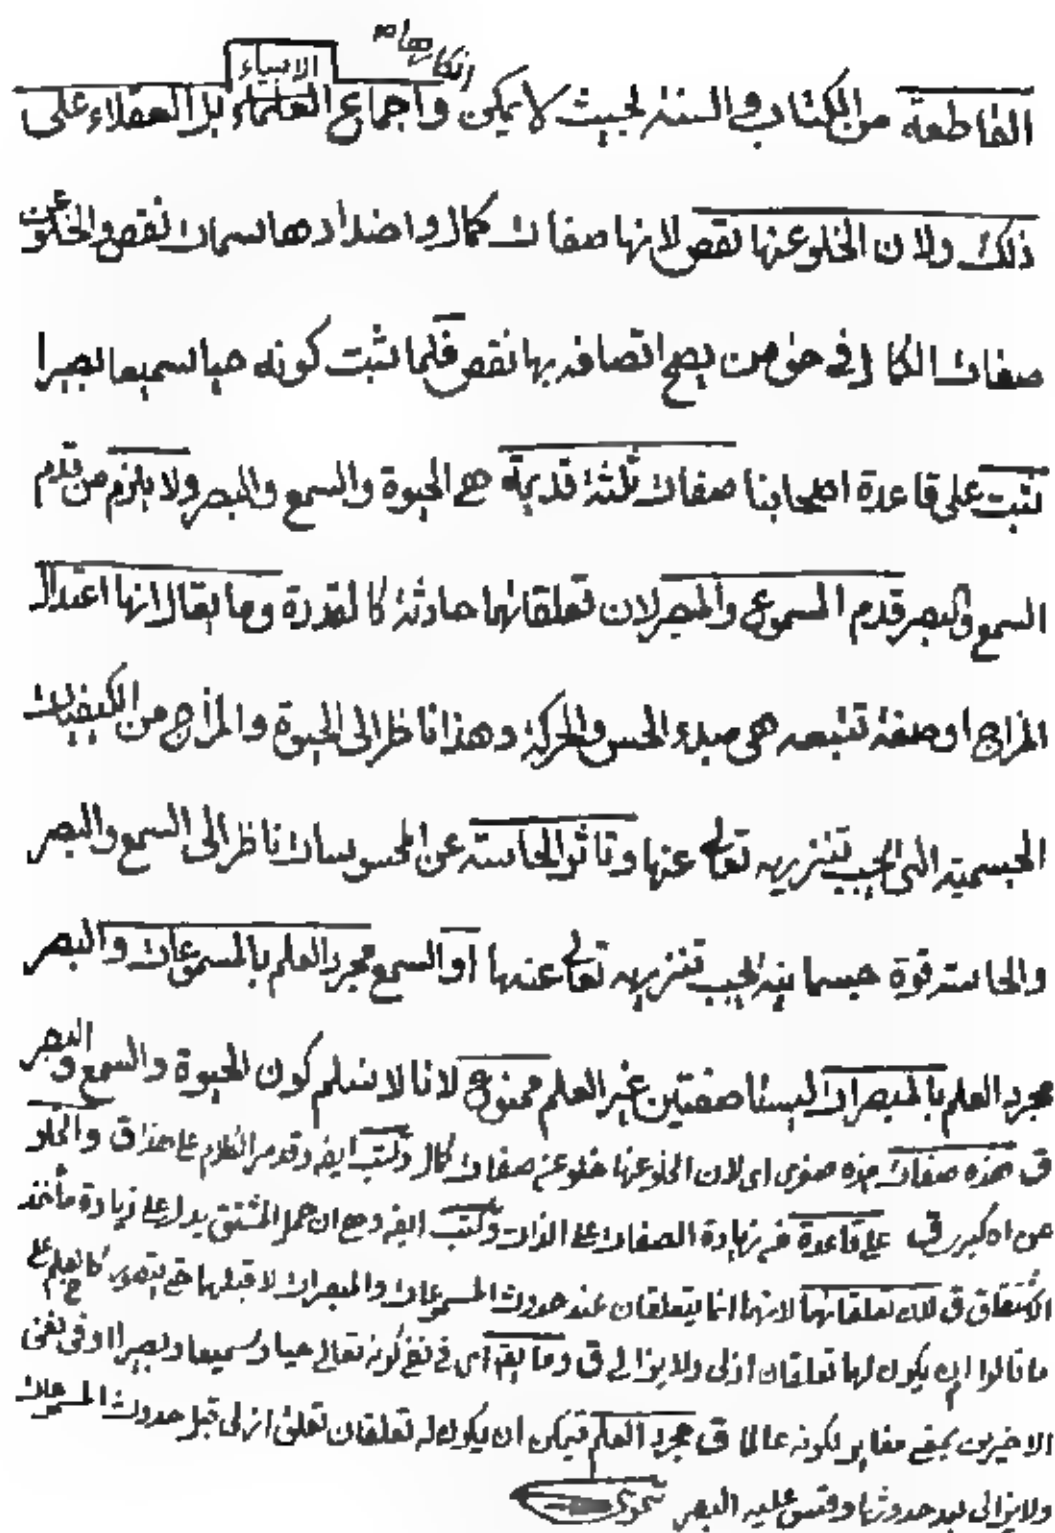 انكارها م
الانبياء
القاطعة من الكتاب والسنة بحيث لا يمكن واجماع العلماء بل العقلاء على
ذلك ولان الخلو عنها نقص لانها صفات كمال واضدادها سمات نقص والخلو عن
صفات الكمال في حق من يصح اتصافه بها نقص فلما ثبت كونه حيا سميعا بصيرا
ثبت على قاعدة اصحابنا صفات ثلثة قديمة هي الحيوة والسمع والبصر ولا يلزم من قدم
السمع والبصر قدم المسموع والمبصر لان تعلقاتهما حادثة كالقدرة وما يقال انها اعتدال
المزاج او صفة تتبعه هي مبدء الحس والحركة وهذا ناظر الى الحيوة والمزاج من الكيفيات
الجسمية التي يجب تنزيهه تعالى عنها وتاثر الحاسة عن المحسوسات ناظر الى السمع والبصر
والحاسة قوة جسمانية يجب تنزيهه تعالى عنها او السمع مجرد العلم بالمسموعات والبصر
مجرد العلم بالمبصرات ليستا صفتين غير العلم ممنوع لانا لا نسلم كون الحيوة والسمع والبصر
ق هذه صفات هذه صغرى اى لان الخلو عنها خلو عن صفات كمال وكتب ايضه وقد مر الكلام على هذا ق والخلو
عن اه كبرى ق على قاعدة في زيادة الصفات على الذات وكتب ايضه ومع ان حمل المشتق يدل على زيادة مأخذ
الاشتقاق ق لان تعلقاتهما لانهما انما يتعلقان عند حدوث المسموعات والمبصرات لا قبلها حتى يتصور كالعلم على
ما قالوا انه يكون لها تعلقان ازلى ولا يزالى ق وما يقه اى في نفى كونه تعالى حيا وسميعا وبصيرا او فى نفى
الاخيرين بمعنى مغاير لكونه عالما ق مجرد العلم فيمكن ان يكون له تعلقان تعلق ازلى قبل حدوث المسموعات
ولا يزالى بعد حدوثها وقس عليه البصر